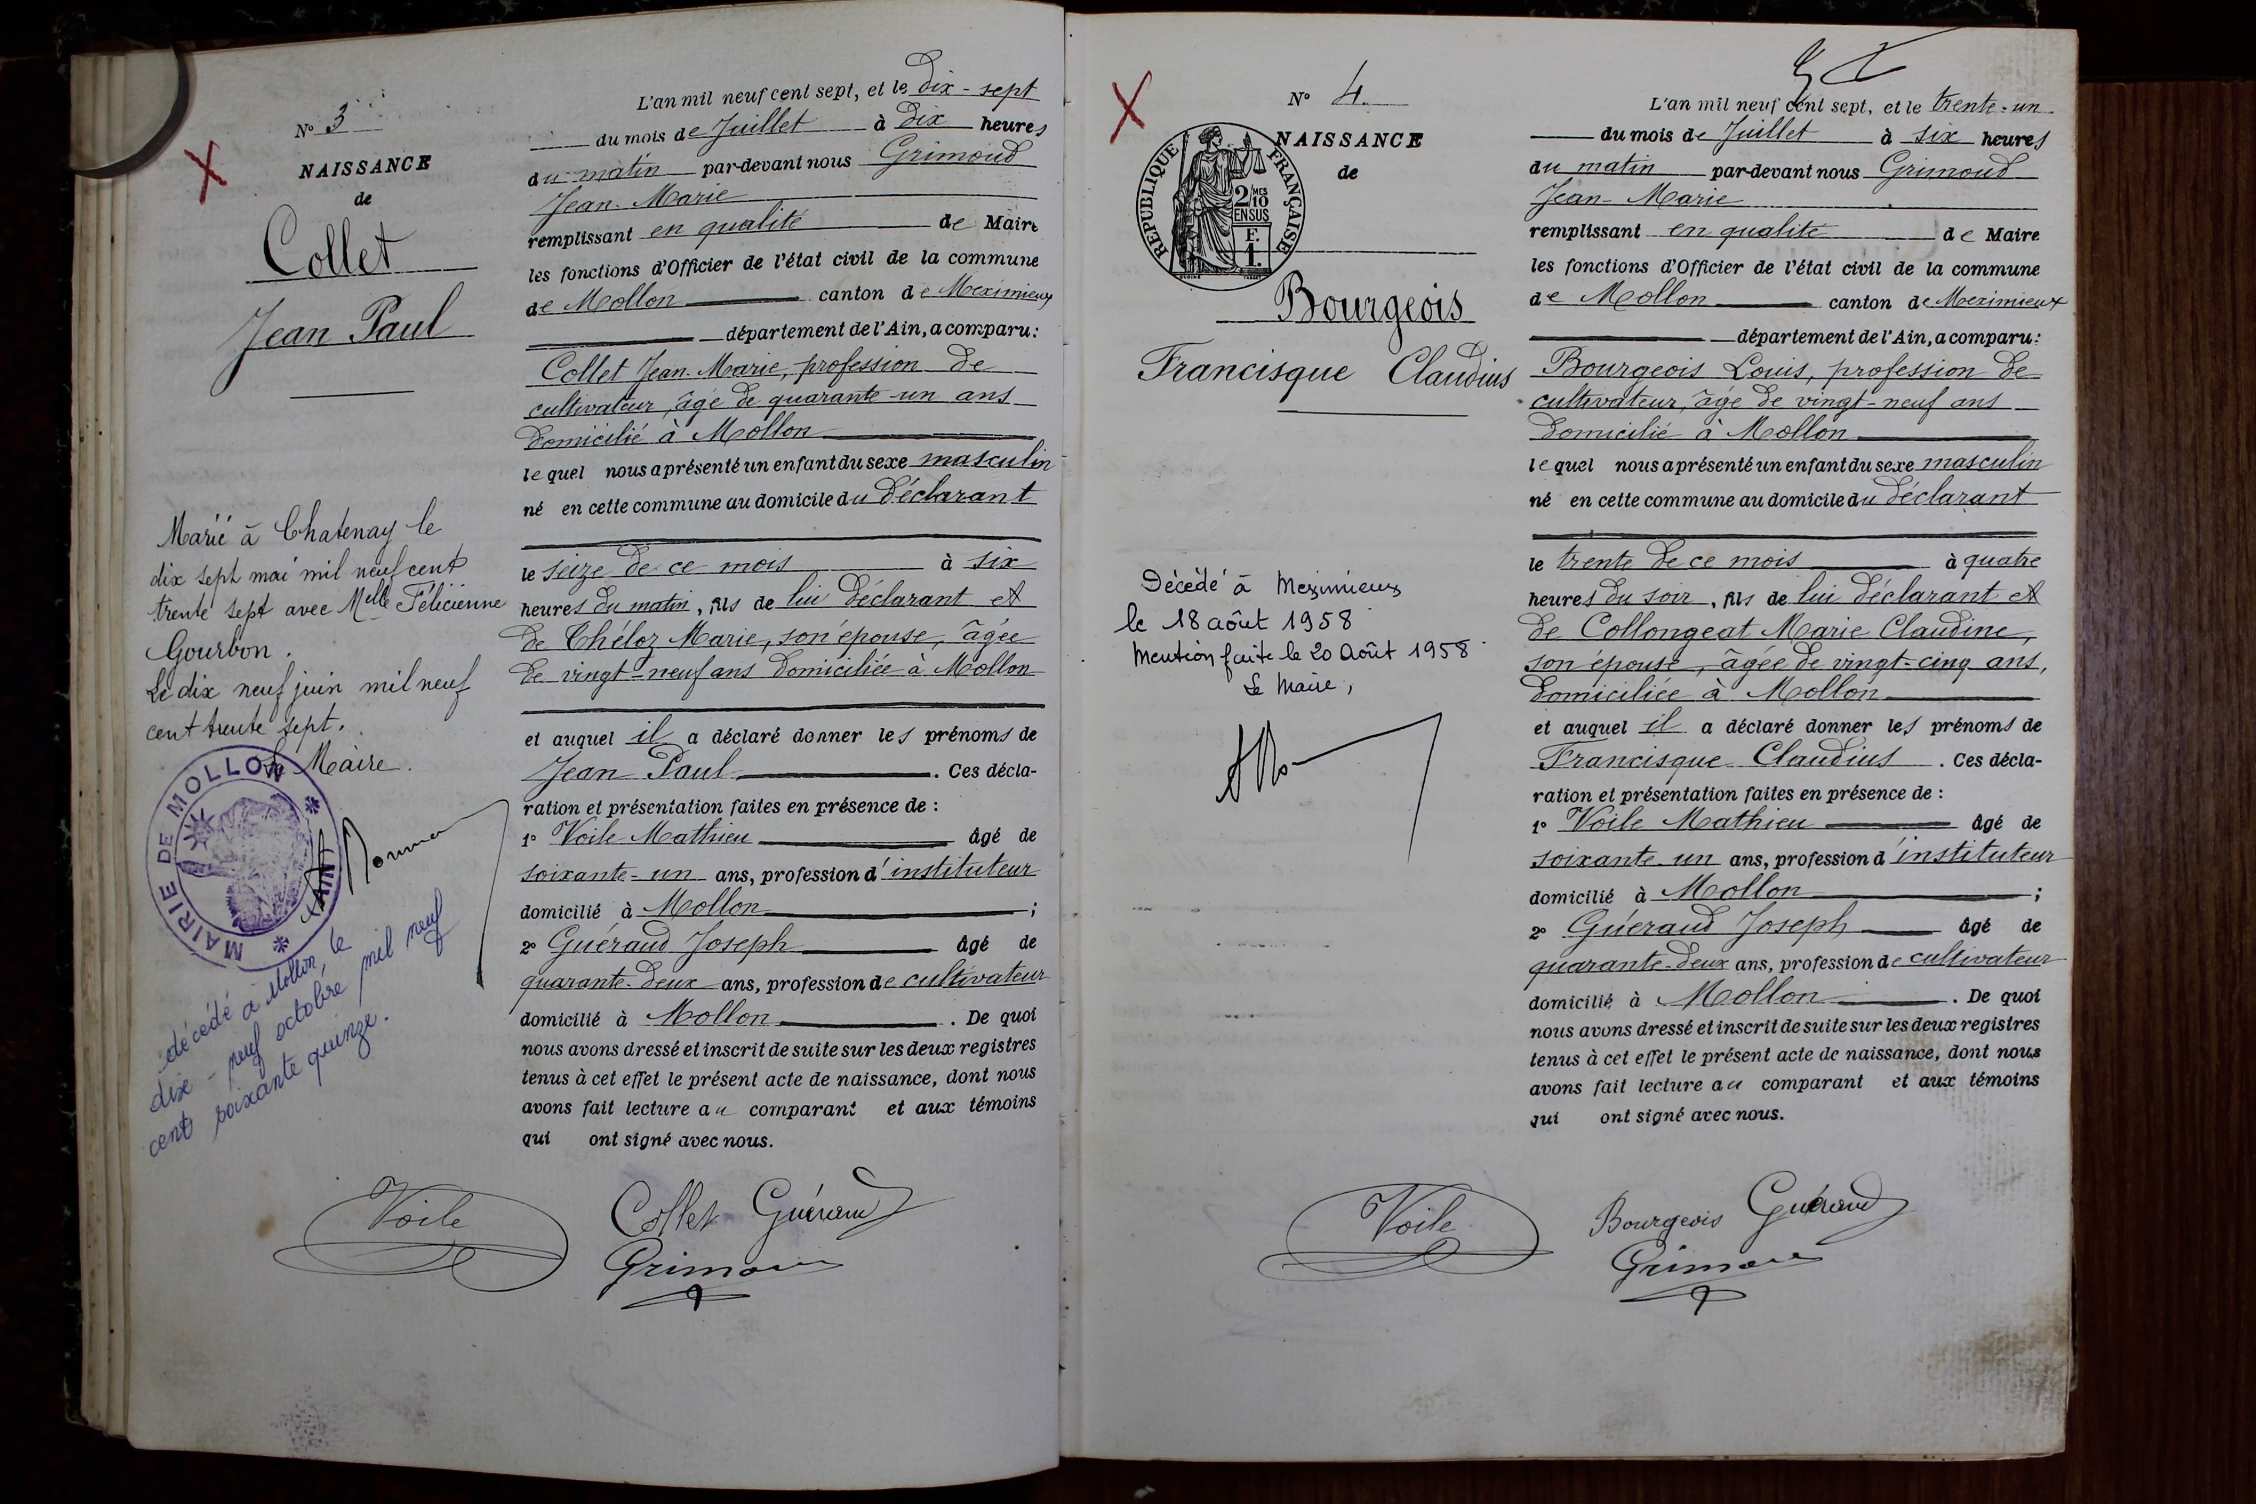 N° 3
NAISSANCE
de
Collet
Jean Paul
Marié à Chatenay le
dix sept mai mil neuf cent
trente sept avec Melle Félicienne
Gourbon.
Le dix neuf juin mil neuf
cent trente sept.
Le Maire.
MAIRIE DE MOLLON
* (AIN) *
décédé à Mollon, le
dix-neuf octobre mil neuf
cent soixante quinze.
L'an mil neuf cent sept, et le dix-sept
du mois de Juillet à dix heures
du matin par-devant nous Grimoud
Jean-Marie
remplissant en qualité de Maire
les fonctions d'Officier de l'état civil de la commune
de Mollon canton de Meximieux
département de l'Ain, a comparu:
Collet Jean-Marie, profession de
cultivateur, âgé de quarante-un ans
domicilié à Mollon
lequel nous a présenté un enfant du sexe masculin
né en cette commune au domicile du déclarant
le seize de ce mois à six
heures du matin, fils de lui déclarant et
de Théloz Marie, son épouse, âgée
de vingt-neuf ans domiciliée à Mollon
et auquel il a déclaré donner les prénoms de
Jean Paul. Ces décla-
ration et présentation faites en présence de :
1° Voile Mathieu âgé de
soixante-un ans, profession d'instituteur
domicilié à Mollon ;
2° Guéraud Joseph âgé de
quarante-deux ans, profession de cultivateur
domicilié à Mollon. De quoi
nous avons dressé et inscrit de suite sur les deux registres
tenus à cet effet le présent acte de naissance, dont nous
avons fait lecture au comparant et aux témoins
qui ont signé avec nous.
Voile Collet Guéraud
Grimoud
N° 4
NAISSANCE
de
REPUBLIQUE FRANÇAISE
2/10 MES
EN SUS
F.
1.
Bourgeois
Francisque Claudius
Décédé à Meximieux
le 18 août 1958
Mention faite le 20 Août 1958
Le Maire,
L'an mil neuf cent sept, et le trente-un
du mois de Juillet à six heures
du matin par-devant nous Grimoud
Jean-Marie
remplissant en qualité de Maire
les fonctions d'Officier de l'état civil de la commune
de Mollon canton de Meximieux
département de l'Ain, a comparu:
Bourgeois Louis, profession de
cultivateur, âgé de vingt-neuf ans
domicilié à Mollon
lequel nous a présenté un enfant du sexe masculin
né en cette commune au domicile du déclarant
le trente de ce mois à quatre
heures du soir, fils de lui déclarant et
de Collongeat Marie Claudine,
son épouse, âgée de vingt-cinq ans,
domiciliée à Mollon
et auquel il a déclaré donner les prénoms de
Francisque Claudius. Ces décla-
ration et présentation faites en présence de :
1° Voile Mathieu âgé de
soixante-un ans, profession d'instituteur
domicilié à Mollon ;
2° Guéraud Joseph âgé de
quarante-deux ans, profession de cultivateur
domicilié à Mollon. De quoi
nous avons dressé et inscrit de suite sur les deux registres
tenus à cet effet le présent acte de naissance, dont nous
avons fait lecture au comparant et aux témoins
qui ont signé avec nous.
Voile Bourgeois Guéraud
Grimoud